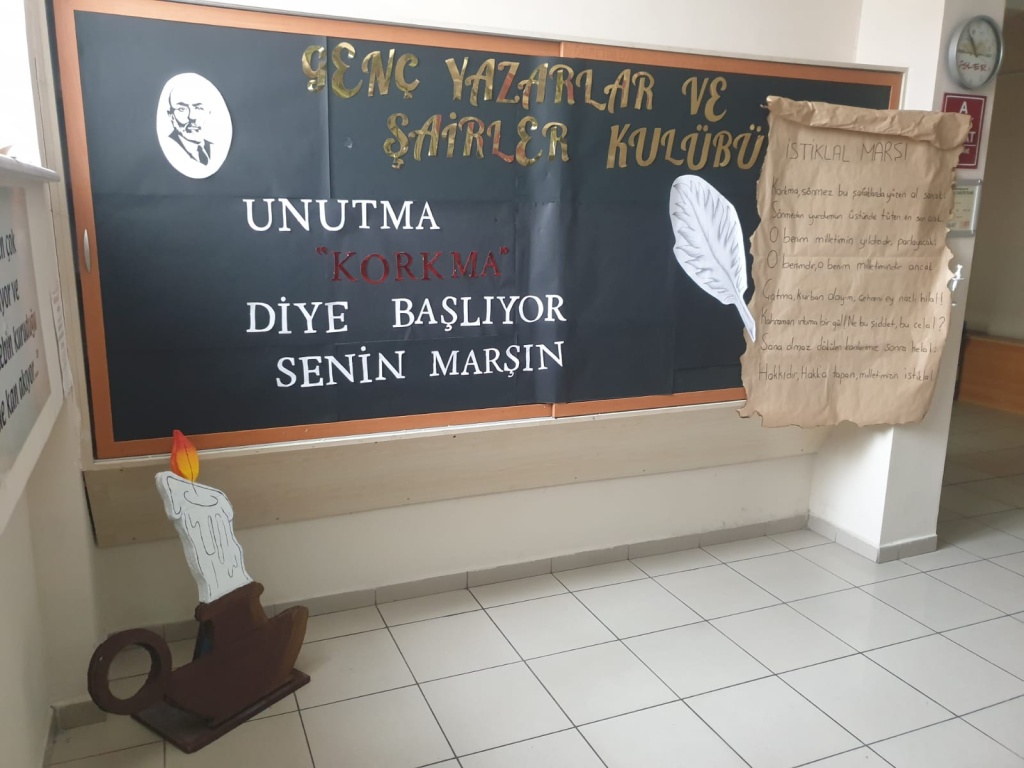 GENÇ YAZARLAR VE
ŞAİRLER KULÜBÜ
UNUTMA
"KORKMA"
DİYE BAŞLIYOR
SENİN MARŞIN
İSTİKLAL MARŞI
Korkma, sönmez bu şafaklarda yüzen al sancak
Sönmeden yurdumun üstünde tüten en son ocak
O benim milletimin yıldızıdır, parlayacak
O benimdir, o benim milletimindir ancak
Çatma, kurban olayım, çehreni ey nazlı hilal!
Kahraman ırkıma bir gül! Ne bu şiddet, bu celal?
Sana olmaz dökülen kanlarımız sonra helal
Hakkıdır, Hakk'a tapan, milletimin istiklal